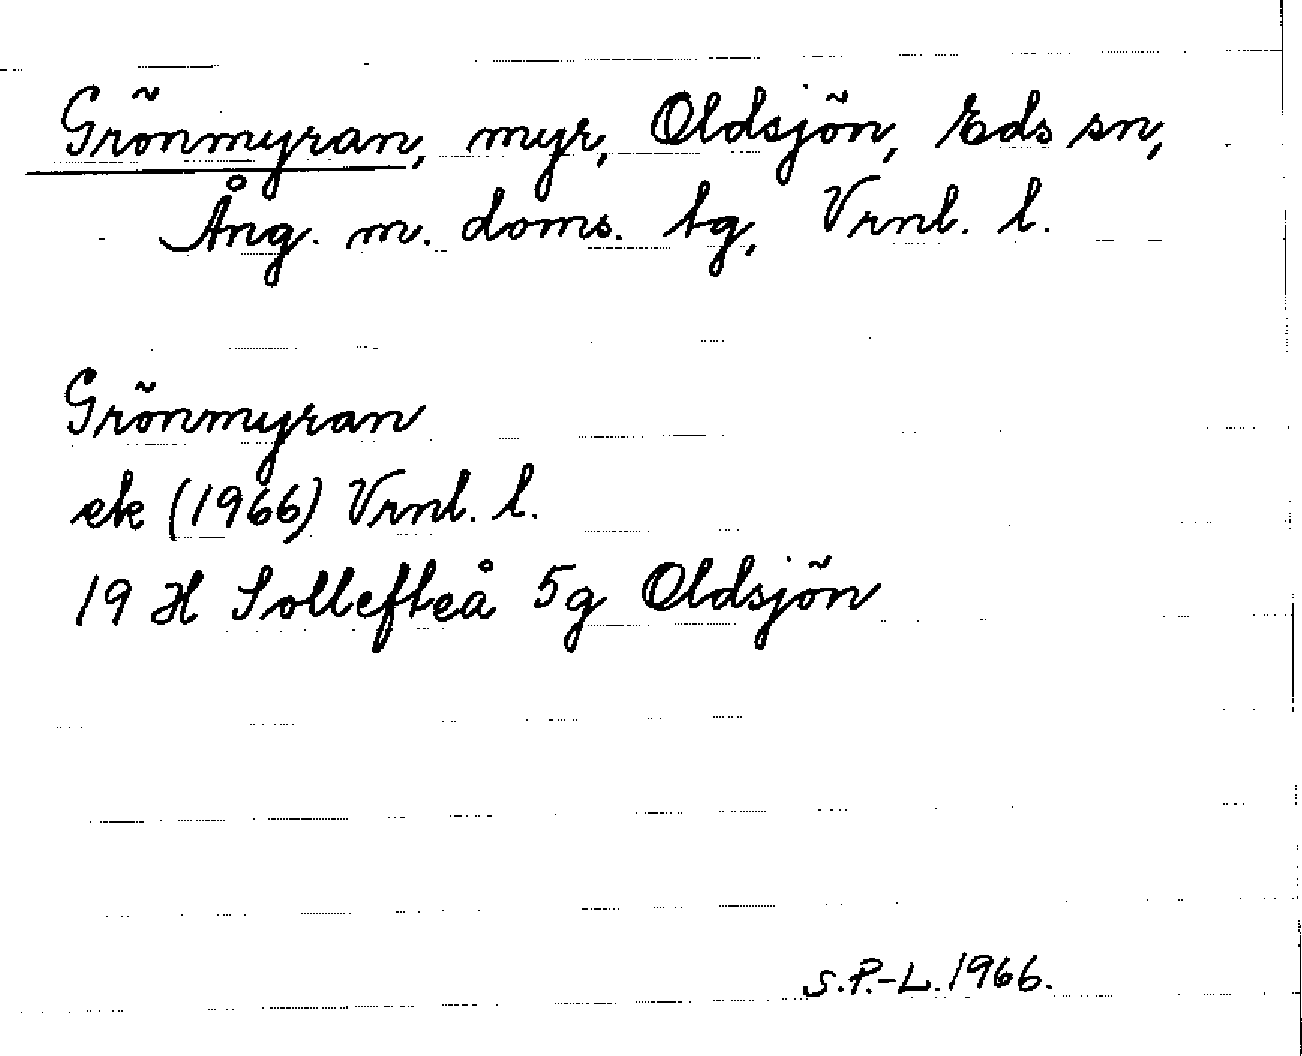 Grönmyran, myr, Oldsjön, Eds sn,
Ång. m. doms. tg, Vrnl. l.
Grönmyran
ek (1966) Vrnl. l.
19 H Sollefteå 5g Oldsjön
S.P.-L. 1966.